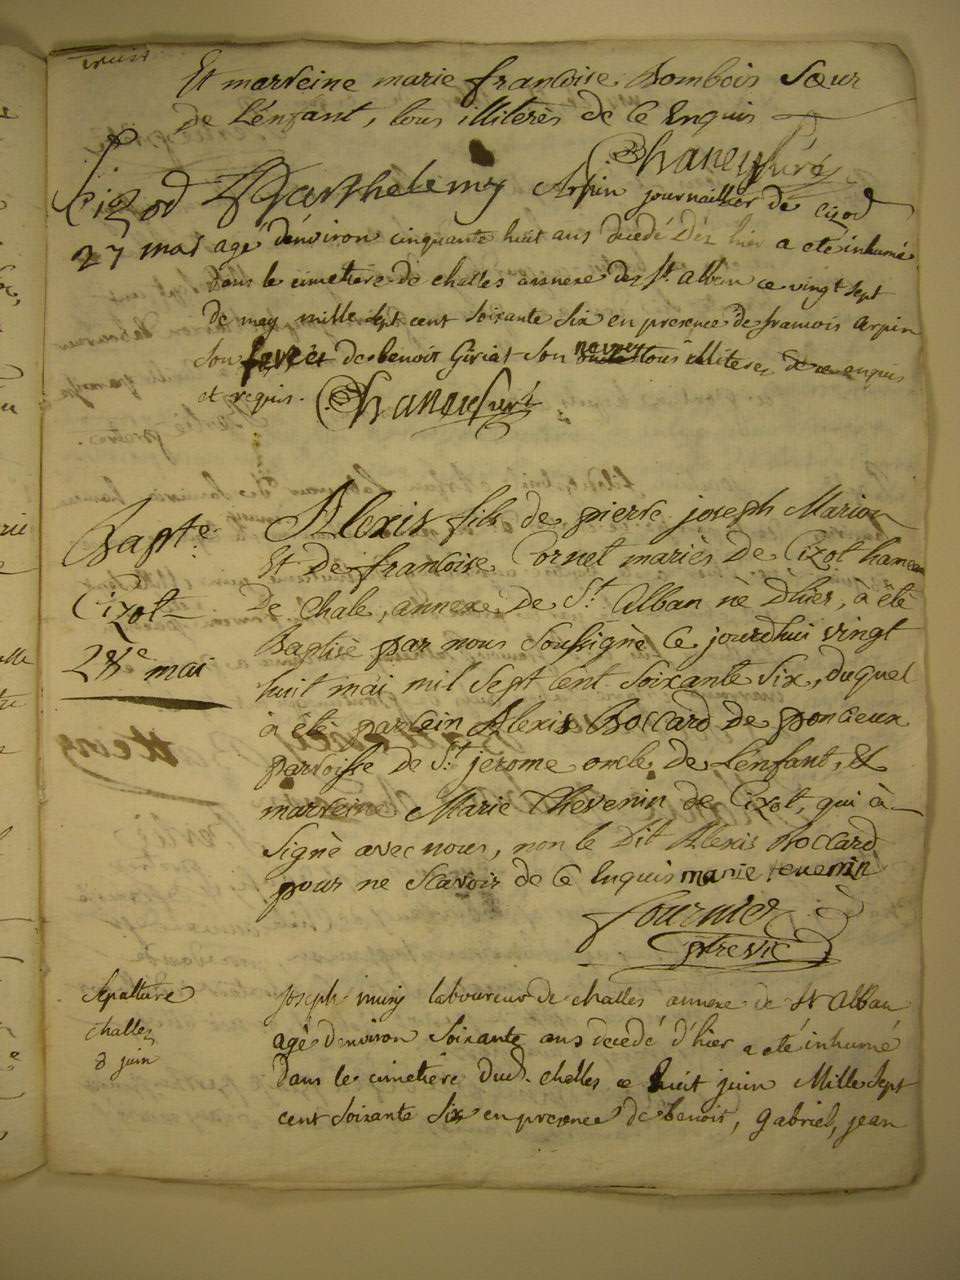 Et marreine marie francoise Bombois Sœur
de L'enfant, tous illiterés de ce Enquis
Chaney Curé
Cizod Barthelemy Arpin journaillier de cizod
27 mai agé d'environ cinquante huit ans decedé Dez hier a eté inhumé
Dans le cimetiere de challes annexe de St. alban ce vingt sept
de may mille sept cent soixante six en presence de francois arpin
son frere et de benoit Giriat son neveu tous illiteres de ce enquis
et requis. Chaney Curé
Bapte. Alexis fils de pierre joseph Marion
Et De francoise Cornet mariés De Cizot hameau
Cizot De Chale, annexe de St. Alban né D'hier, à été
Baptisé par nous Soussigné Ce jourd'hui vingt
28e mai huit mai mil sept cent soixante Six, duquel
à été parrein Alexis Boccard De poncieux
parroisse De St. jerome oncle De L'enfant, &
marreine Marie Thevenin de Cizot, qui à
Signé avec nous, non le Dit Alexis Boccard
pour ne Scavoir de ce Enquis marie tevenin
fournier
ptre vic
Sepulture joseph muny laboureur de challes annexe de St Alban
challes agé d'environ soixante ans decedé d'hier a eté inhumé
8 juin Dans le cimetiere dud. challes ce huit juin Mille sept
cent soixante six en presence de benoit, gabriel, jean